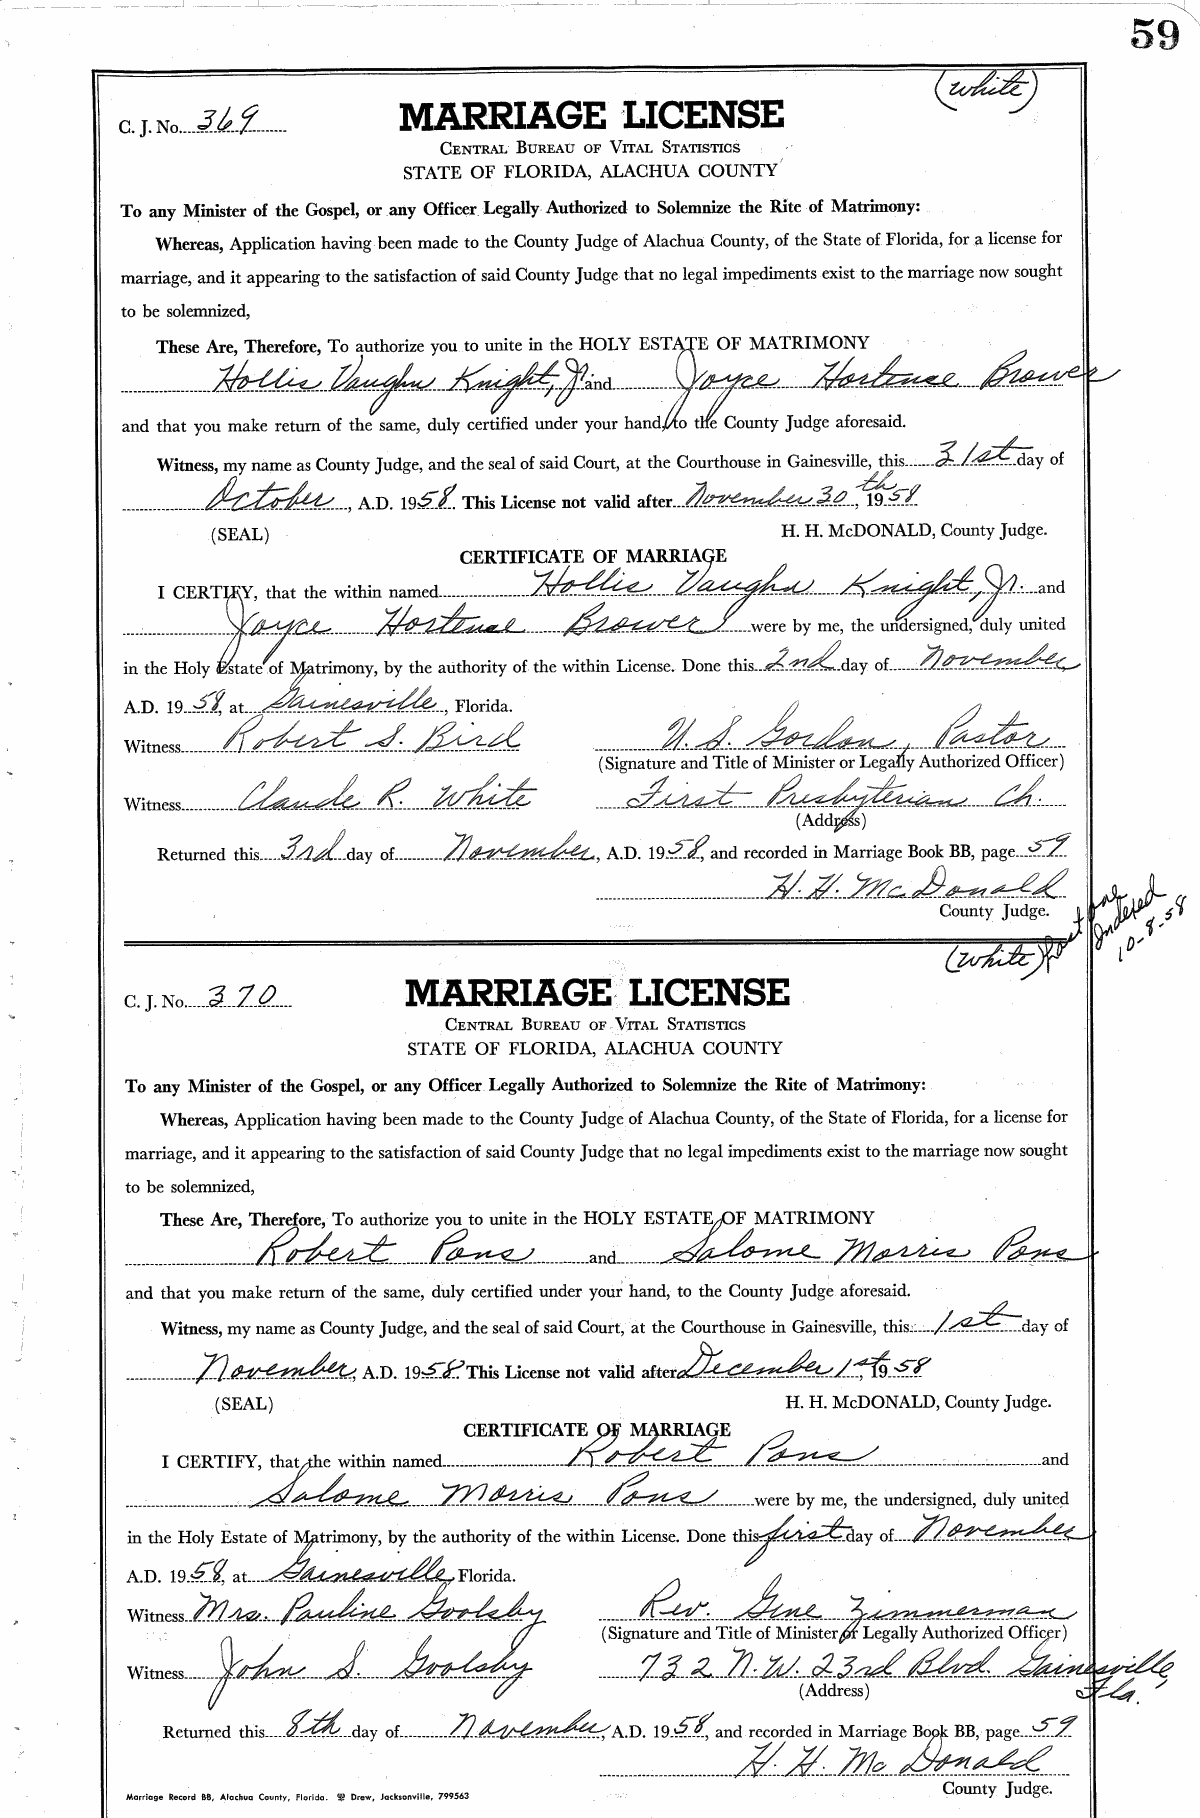 59
(white)
C. J. No. 369
MARRIAGE LICENSE
CENTRAL BUREAU OF VITAL STATISTICS
STATE OF FLORIDA, ALACHUA COUNTY
To any Minister of the Gospel, or any Officer Legally Authorized to Solemnize the Rite of Matrimony:
Whereas, Application having been made to the County Judge of Alachua County, of the State of Florida, for a license for
marriage, and it appearing to the satisfaction of said County Judge that no legal impediments exist to the marriage now sought
to be solemnized,
These Are, Therefore, To authorize you to unite in the HOLY ESTATE OF MATRIMONY
Hollis Vaughn Knight, Jr. and Joyce Hortense Brower
and that you make return of the same, duly certified under your hand, to the County Judge aforesaid.
Witness, my name as County Judge, and the seal of said Court, at the Courthouse in Gainesville, this 31st day of
October, A.D. 1958. This License not valid after November 30th, 1958
(SEAL) H. H. McDONALD, County Judge.
CERTIFICATE OF MARRIAGE
I CERTIFY, that the within named Hollis Vaughn Knight, Jr. and
Joyce Hortense Brower were by me, the undersigned, duly united
in the Holy Estate of Matrimony, by the authority of the within License. Done this 2nd day of November
A.D. 1958, at Gainesville, Florida.
Witness Robert S. Bird U. S. Gordon, Pastor
(Signature and Title of Minister or Legally Authorized Officer)
Witness Claude R. White First Presbyterian Ch.
(Address)
Returned this 3rd day of November, A.D. 1958, and recorded in Marriage Book BB, page 59
H. H. McDonald
County Judge.
(White) Last one
Indexed
10-8-58
C. J. No. 370
MARRIAGE LICENSE
CENTRAL BUREAU OF VITAL STATISTICS
STATE OF FLORIDA, ALACHUA COUNTY
To any Minister of the Gospel, or any Officer Legally Authorized to Solemnize the Rite of Matrimony:
Whereas, Application having been made to the County Judge of Alachua County, of the State of Florida, for a license for
marriage, and it appearing to the satisfaction of said County Judge that no legal impediments exist to the marriage now sought
to be solemnized,
These Are, Therefore, To authorize you to unite in the HOLY ESTATE OF MATRIMONY
Robert Pons and Salome Morris Pons
and that you make return of the same, duly certified under your hand, to the County Judge aforesaid.
Witness, my name as County Judge, and the seal of said Court, at the Courthouse in Gainesville, this 1st day of
November, A.D. 1958. This License not valid after December 1st, 1958
(SEAL) H. H. McDONALD, County Judge.
CERTIFICATE OF MARRIAGE
I CERTIFY, that the within named Robert Pons and
Salome Morris Pons were by me, the undersigned, duly united
in the Holy Estate of Matrimony, by the authority of the within License. Done this first day of November
A.D. 1958, at Gainesville, Florida.
Witness Mrs. Pauline Goolsby Rev. Gene Zimmerman
(Signature and Title of Minister or Legally Authorized Officer)
Witness John S. Goolsby 732 N.W. 23rd Blvd. Gainesville,
Fla.
(Address)
Returned this 8th day of November, A.D. 1958, and recorded in Marriage Book BB, page 59
H. H. McDonald
County Judge.
Marriage Record BB, Alachua County, Florida. Drew, Jacksonville, 799563